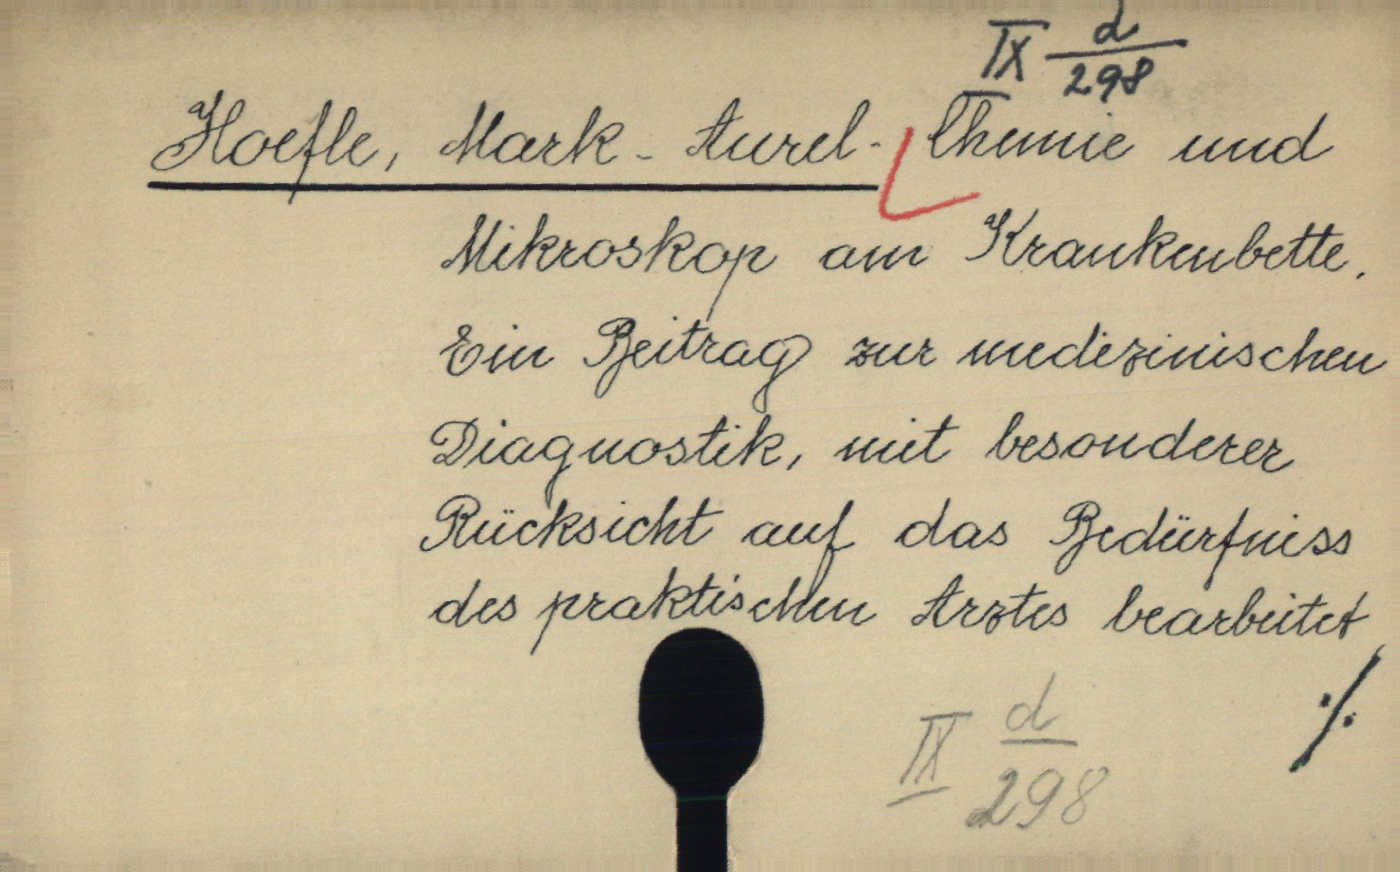 IX d/298
Hoefle, Mark-Aurel. Chemie und
Mikroskop am Krankenbette.
Ein Beitrag zur medizinischen
Diagnostik, mit besonderer
Rücksicht auf das Bedürfniss
des praktischen Arztes bearbeitet
./.
IX d/298